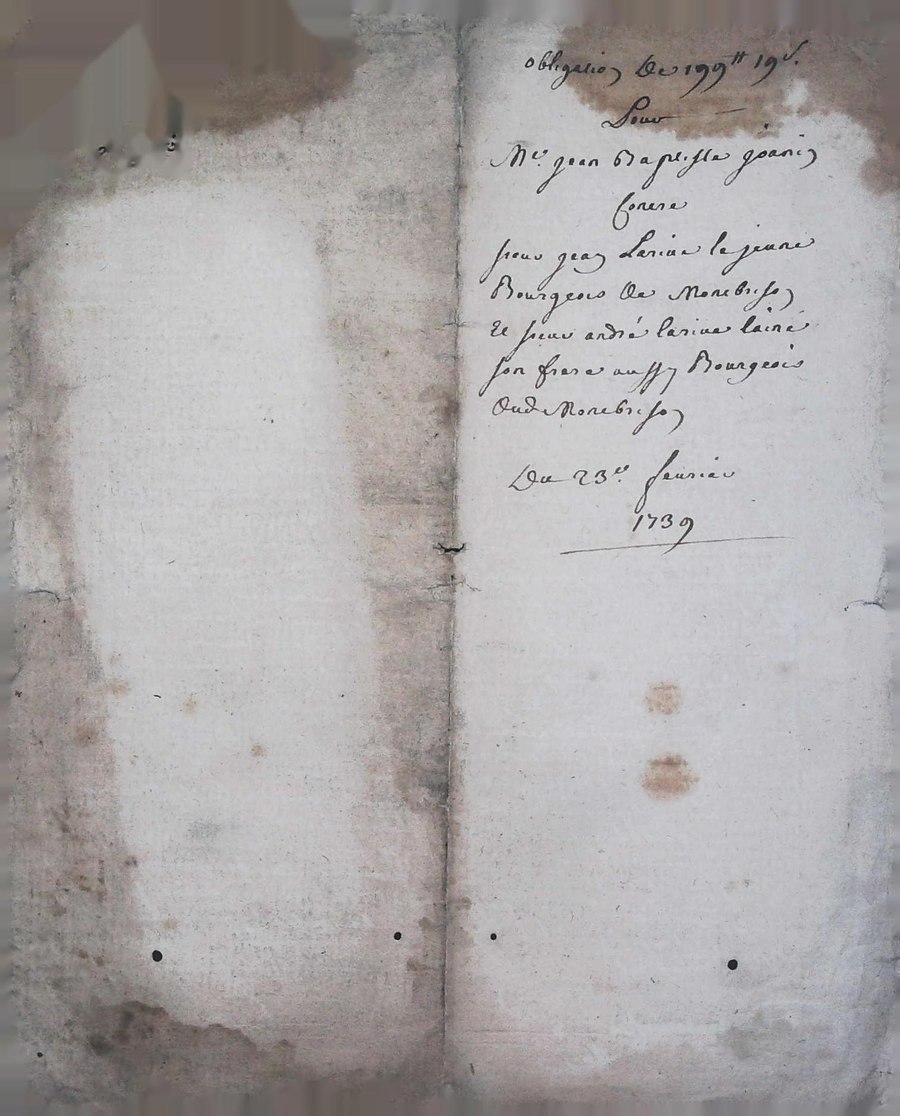 obligation De 199ᵗᵗ 19ˢ.
Pour
Mᵉ. jean Baptiste joanin
Contre
sieur jean Larive le jeune
Bourgeois de Montbrison
Et sieur andré larive lainé
son frere aussy Bourgeois
dud Montbrison
Du 23ᵉ. fevrier
1739